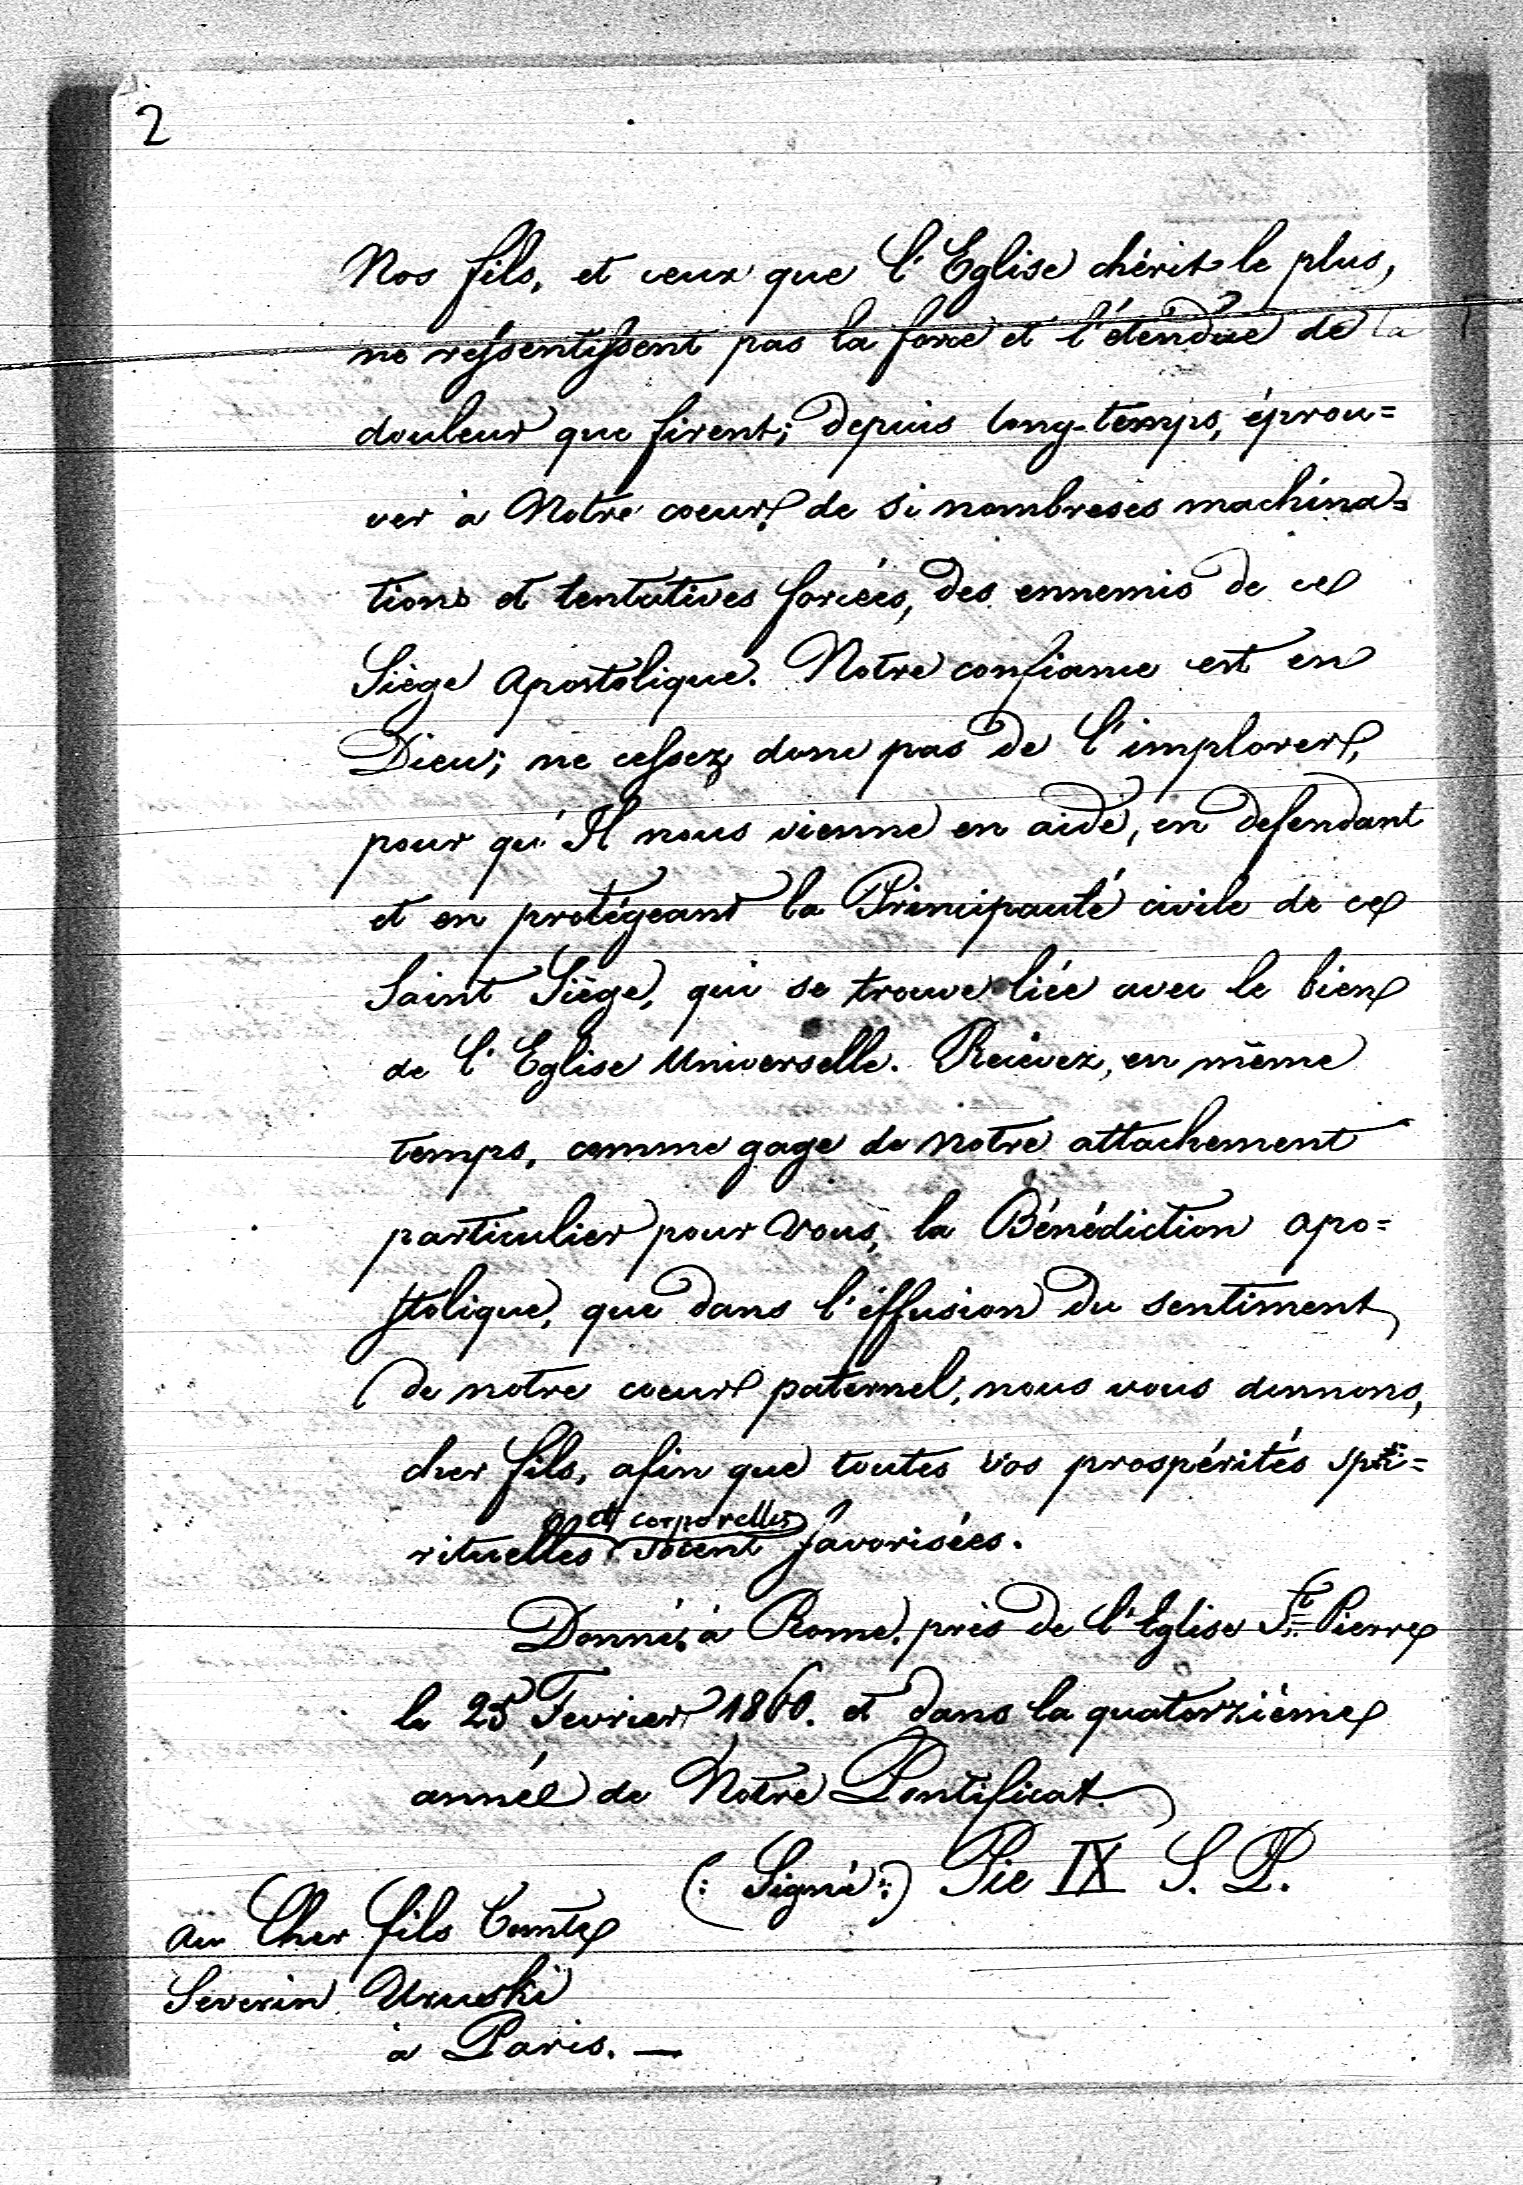 2
Nos fils, et ceux que l'Eglise chérit le plus,
ne ressentissent pas la force et l'étendue de la
douleur que firent; depuis long-temps, éprou=
ver à Notre coeur, de si nombreses machina=
tions et tentatives forcées, des ennemis de ce
Siège Apostolique. Notre confiance est en
Dieu; ne cessez donc pas de l'implorer,
pour qu'Il nous vienne en aide, en defendant
et en protégeant la Principauté civile de ce
Saint Siège, qui se trouve liée avec le bien
de l'Eglise Universelle. Recevez, en même
temps, comme gage de notre attachement
particulier pour Vous, la Bénédiction apo=
stolique, que dans l'éffusion du sentiment
de notre coeur paternel, nous vous donnons,
cher fils, afin que toutes vos prospérités spi=
rituelles et corporelles soient favorisées.
Donné à Rome, près de l'Eglise St. Pierre
le 25 Fevrier 1860. et dans la quatorzième
année de Notre Pontificat.
(: Signé :) Pie IX S. P.
Au Cher fils Comte
Severin Uruski
à Paris. —